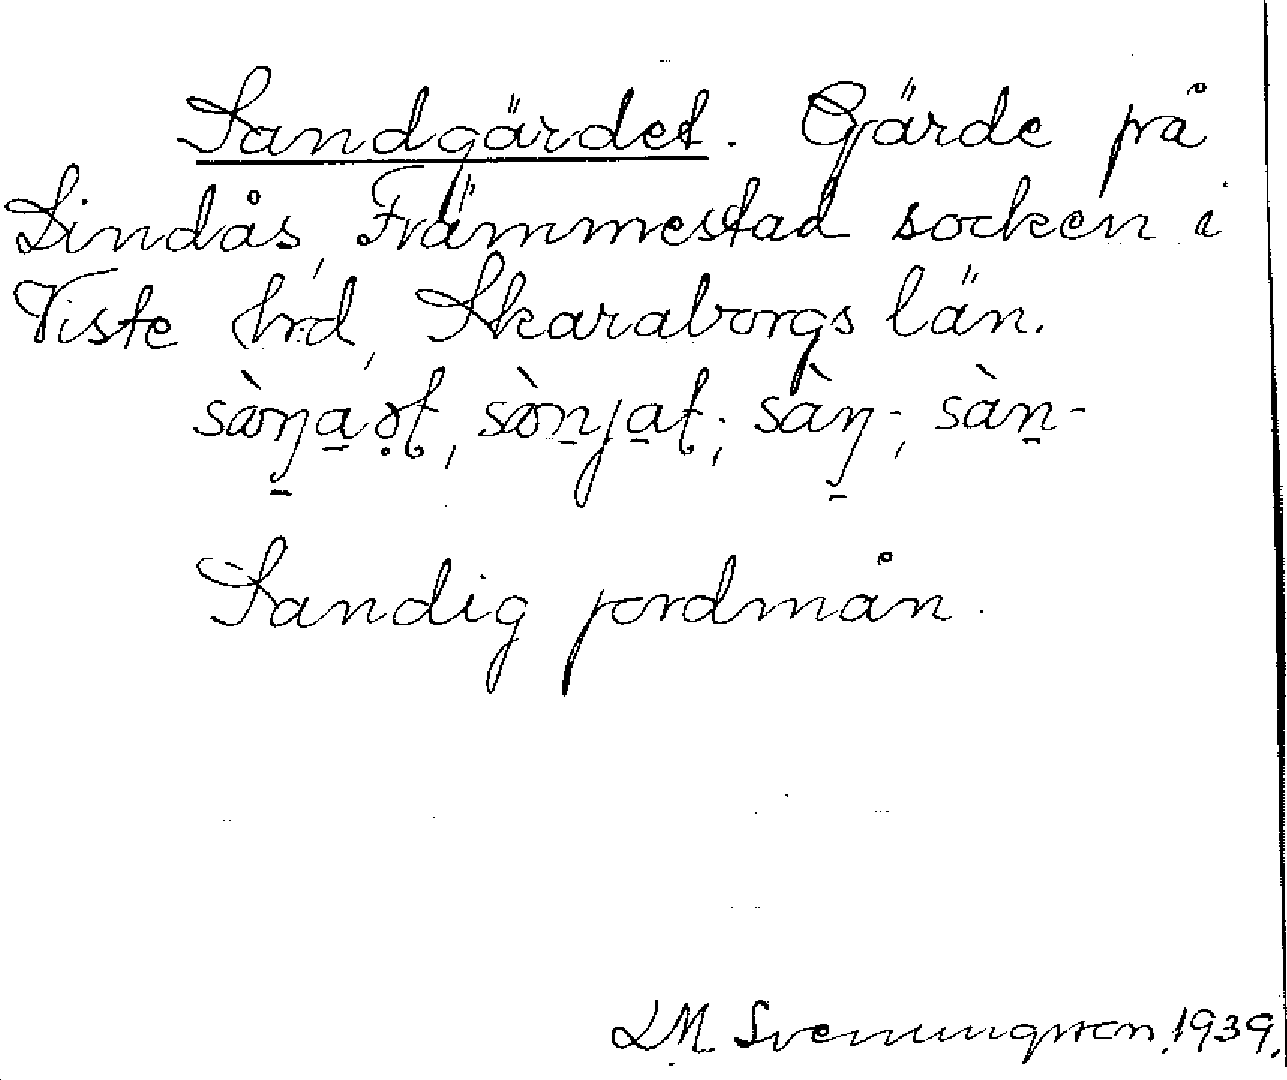 Sandgärdet. Gärde på
Lindås, Främmestad socken i
Viste hrd, Skaraborgs län.
Sandig jordmån.
L M Svenungsson, 1939.